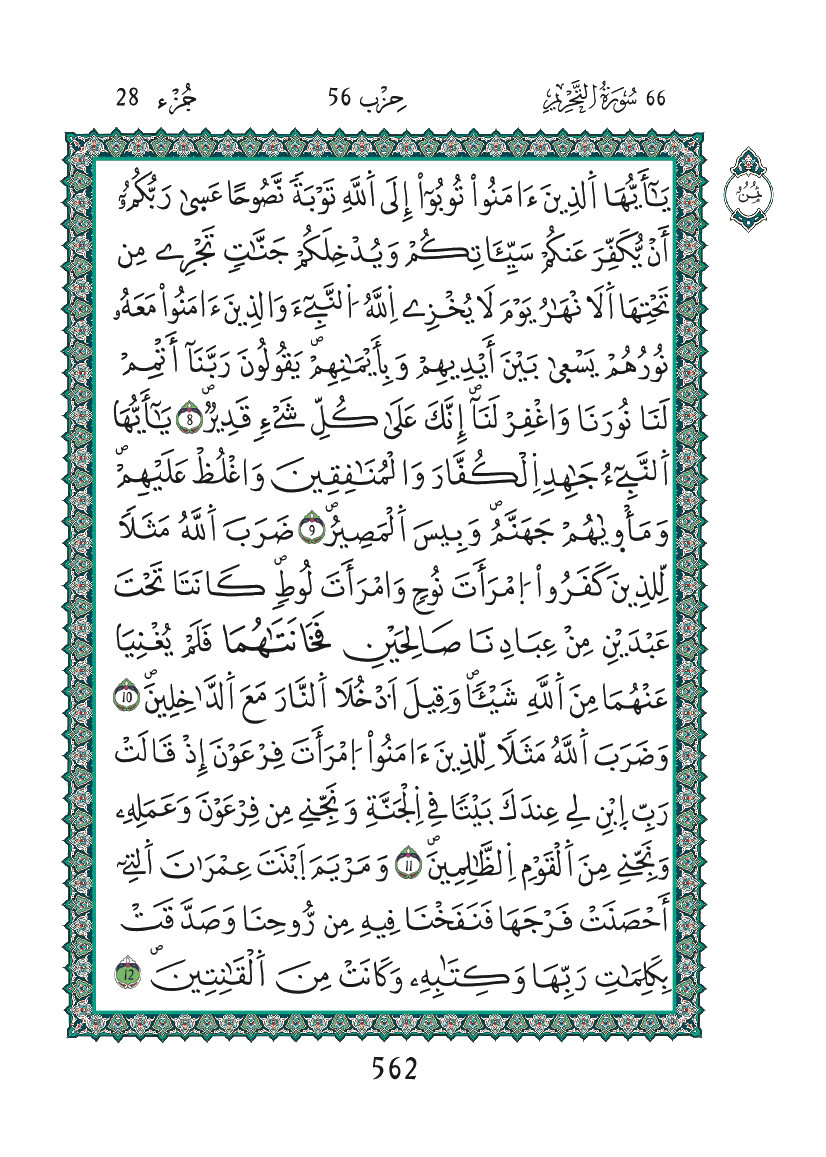 66 سُورَةُ التَّحْرِيمِ حِزْب 56 جُزْء 28
ثُمُنُ
يَٰٓأَيُّهَا اَ۬لذِينَ ءَامَنُواْ تُوبُوٓاْ إِلَى اَ۬للَّهِ تَوْبَةٗ نَّصُوحاً عَس۪يٰ رَبُّكُمُۥٓ
أَنْ يُّكَفِّرَ عَنكُمْ سَيِّـَٔاتِكُمْ وَيُدْخِلَكُمْ جَنَّٰتٖ تَجْرِے مِن
تَحْتِهَا اَ۬لَانْهَٰرُ يَوْمَ لَا يُخْزِے اِ۬للَّهُ اُ۬لنَّبِيٓءَ وَالذِينَ ءَامَنُواْ مَعَهُۥ
نُورُهُمْ يَسْع۪يٰ بَيْنَ أَيْدِيهِمْ وَبِأَيْمَٰنِهِمْۖ يَقُولُونَ رَبَّنَآ أَتْمِمْ
لَنَا نُورَنَا وَاغْفِرْ لَنَآۖ إِنَّكَ عَلَىٰ كُلِّ شَےْءٖ قَدِيرٞۖ 8 يَٰٓأَيُّهَا
اَ۬لنَّبِيٓءُ جَٰهِدِ اِ۬لْكُفَّارَ وَالْمُنَٰفِقِينَ وَاغْلُظْ عَلَيْهِمْۖ
وَمَأْو۪يٰهُمْ جَهَنَّمُۖ وَبِيسَ اَ۬لْمَصِيرُۖ 9 ضَرَبَ اَ۬للَّهُ مَثَلاٗ
لِّلذِينَ كَفَرُواْ اُ۪مْرَأَتَ نُوحٖ وَامْرَأَتَ لُوطٖۖ كَانَتَا تَحْتَ
عَبْدَيْنِ مِنْ عِبَادِنَا صَٰلِحَيْنِ فَخَانَتَٰهُمَا فَلَمْ يُغْنِيَا
عَنْهُمَا مِنَ اَ۬للَّهِ شَيْـٔاٗۖ وَقِيلَ اَ۟دْخُلَا اَ۬لنَّارَ مَعَ اَ۬لدَّٰخِلِينَۖ 10
وَضَرَبَ اَ۬للَّهُ مَثَلاٗ لِّلذِينَ ءَامَنُواْ اُ۪مْرَأَتَ فِرْعَوْنَ إِذْ قَالَتْ
رَبِّ اِ۪بْنِ لِے عِندَكَ بَيْتاٗ فِے اِ۬لْجَنَّةِ وَنَجِّنِے مِن فِرْعَوْنَ وَعَمَلِهِۦ
وَنَجِّنِے مِنَ اَ۬لْقَوْمِ اِ۬لظَّٰلِمِينَۖ 11 وَمَرْيَمَ اَ۪بْنَتَ عِمْرَٰنَ اَ۬لتِےٓ
أَحْصَنَتْ فَرْجَهَا فَنَفَخْنَا فِيهِ مِن رُّوحِنَا وَصَدَّقَتْ
بِكَلِمَٰتِ رَبِّهَا وَكِتَٰبِهِۦ وَكَانَتْ مِنَ اَ۬لْقَٰنِتِينَۖ 12
562